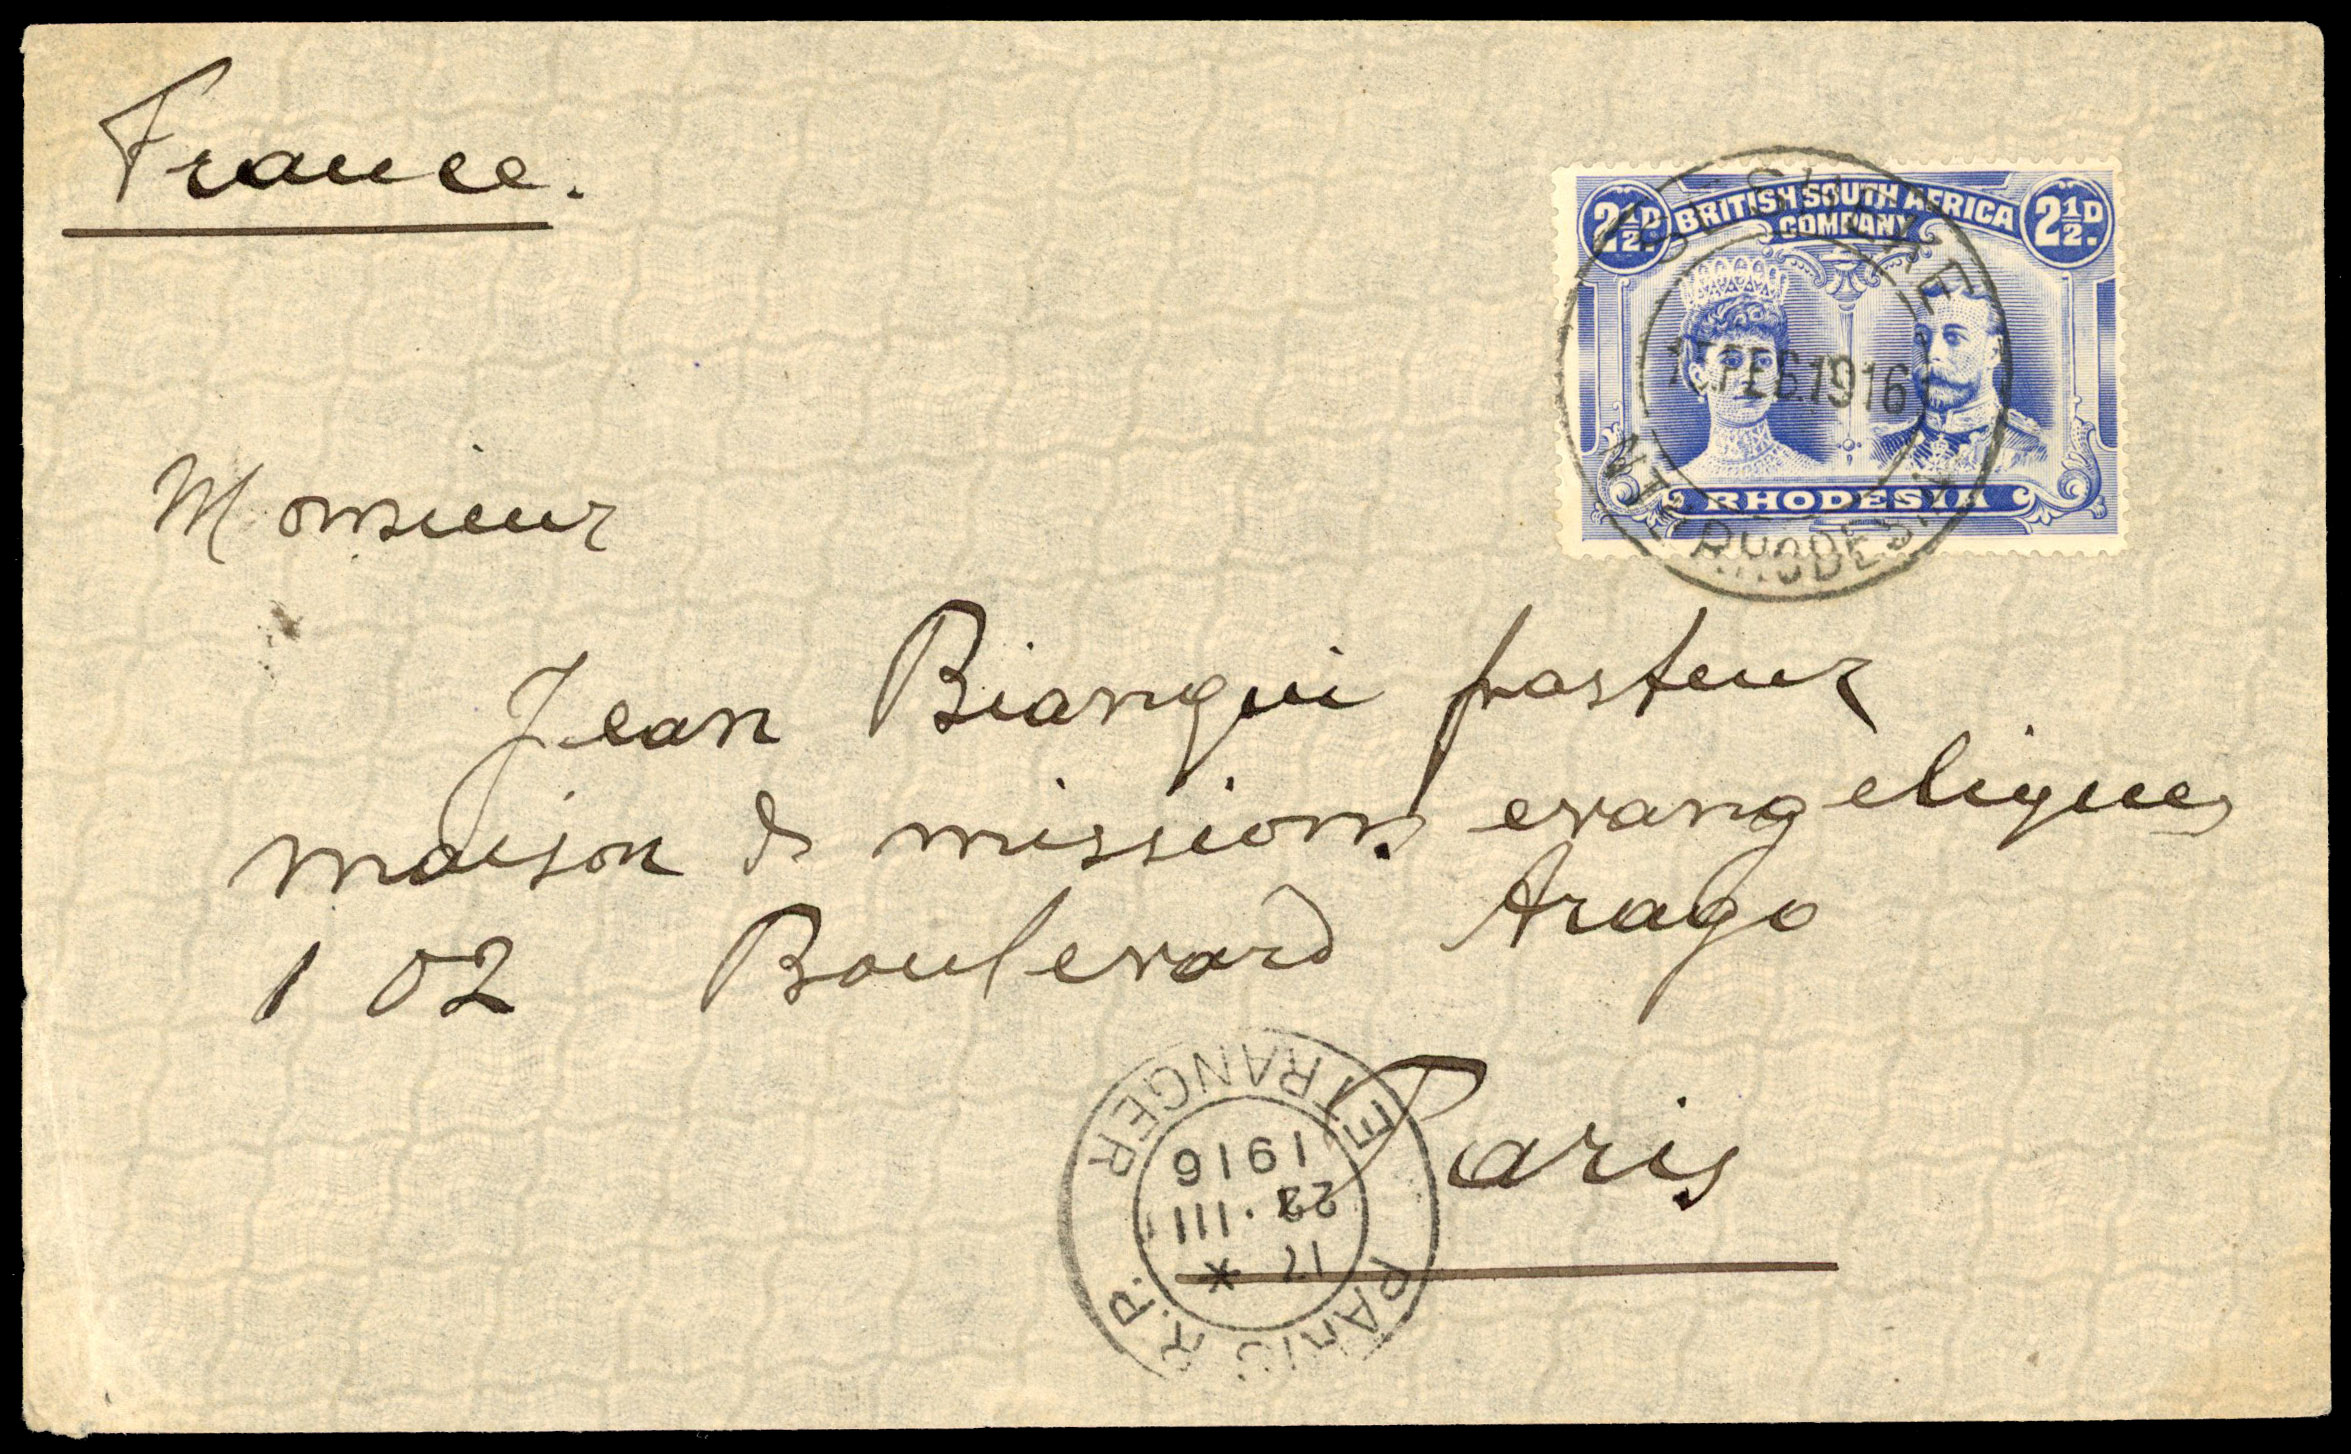 France.
2½D. BRITISH SOUTH AFRICA 2½D.
COMPANY
FEB 1916
RHODESIA
NTH RHODESIA
Monsieur
Jean Bianqui pasteur
maison ds missions evangeliques
102 Boulevard Arago
Paris
PARIS R.P. ETRANGER
17 *
III
1916